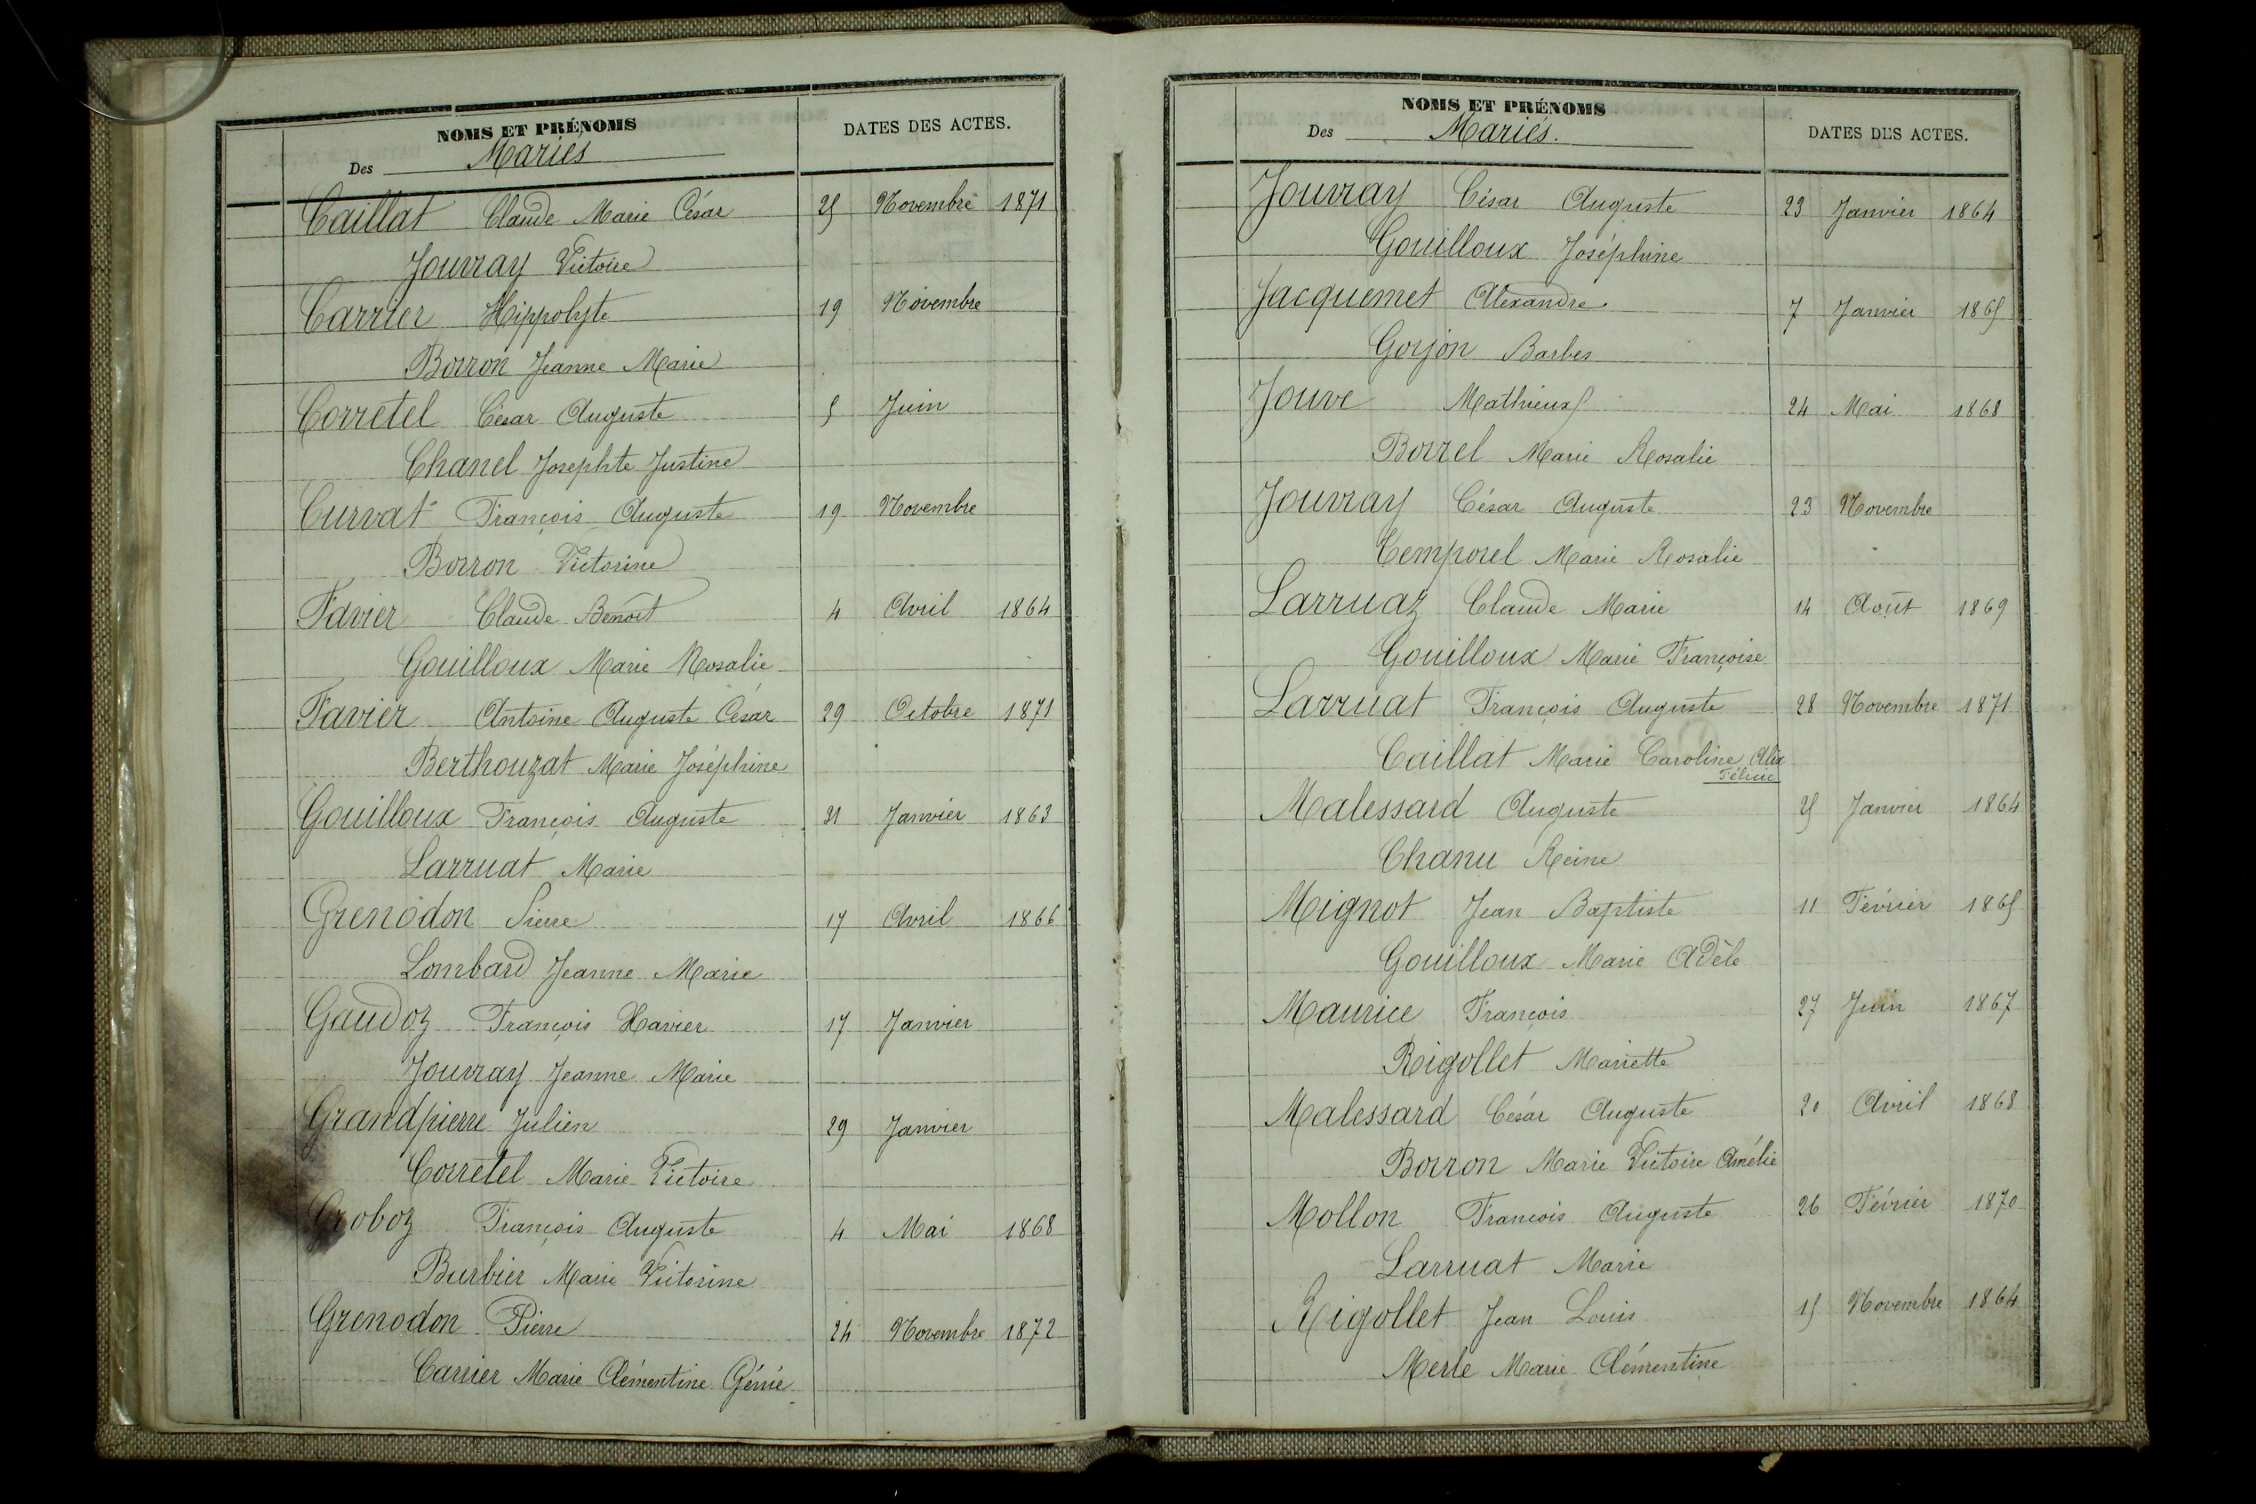 NOMS ET PRÉNOMS
DATES DES ACTES.
Des Mariés
Caillat Claude Marie César 25 Novembre 1871
Jouvray Victoire
Carrier Hippolyte 19 Novembre
Borron Jeanne Marie
Corretel César Auguste 5 Juin
Chanel Josephte Justine
Curvat François Auguste 19 Novembre
Borron Victorine
Favier Claude Benoit 4 Avril 1864
Gouilloux Marie Rosalie
Favier Antoine Auguste César 29 Octobre 1871
Berthouzat Marie Joséphine
Gouilloux François Auguste 31 Janvier 1863
Larruat Marie
Grenodon Pierre 17 Avril 1866
Lombard Jeanne Marie
Gaudoz François Xavier 17 Janvier
Jouvray Jeanne Marie
Grandpierre Julien 29 Janvier
Corretel Marie Victoire
Groboz François Auguste 4 Mai 1868
Burbier Marie Victorine
Grenodon Pierre 24 Novembre 1872
Carrier Marie Clémentine Génie
NOMS ET PRÉNOMS
Des Mariés.
DATES DES ACTES.
Jouvray César Auguste 23 Janvier 1864
Gouilloux Joséphine
Jacquemet Alexandre 7 Janvier 1865
Gorjon Barbes
Jouve Mathieux 24 Mai 1868
Borrel Marie Rosalie
Jouvray César Auguste 23 Novembre
Temporel Marie Rosalie
Larruaz Claude Marie 14 Août 1869
Gouilloux Marie Françoise
Larruat François Auguste 28 Novembre 1871
Caillat Marie Caroline Alix
Malessard Auguste 25 Janvier 1864
Chanu Reine
Mignot Jean Baptiste 11 Février 1865
Gouilloux Marie Adèle
Maurice François 27 Juin 1867
Rigollet Mariette
Malessard César Auguste 20 Avril 1868
Borron Marie Victoire Amélie
Mollon François Auguste 26 Février 1870
Larruat Marie
Rigollet Jean Louis 15 Novembre 1864
Merle Marie Clémentine